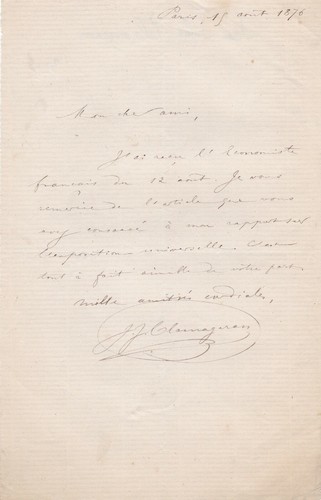 Paris, 15 août 1876
Mon cher ami,
J'ai reçu l'Economiste
français du 12 août. Je vous
remercie de l'article que vous
avez consacré à mon rapport sur
l'exposition universelle. C'est
tout à fait aimable de votre part.
Mille amitiés cordiales,
JJ Clamageran